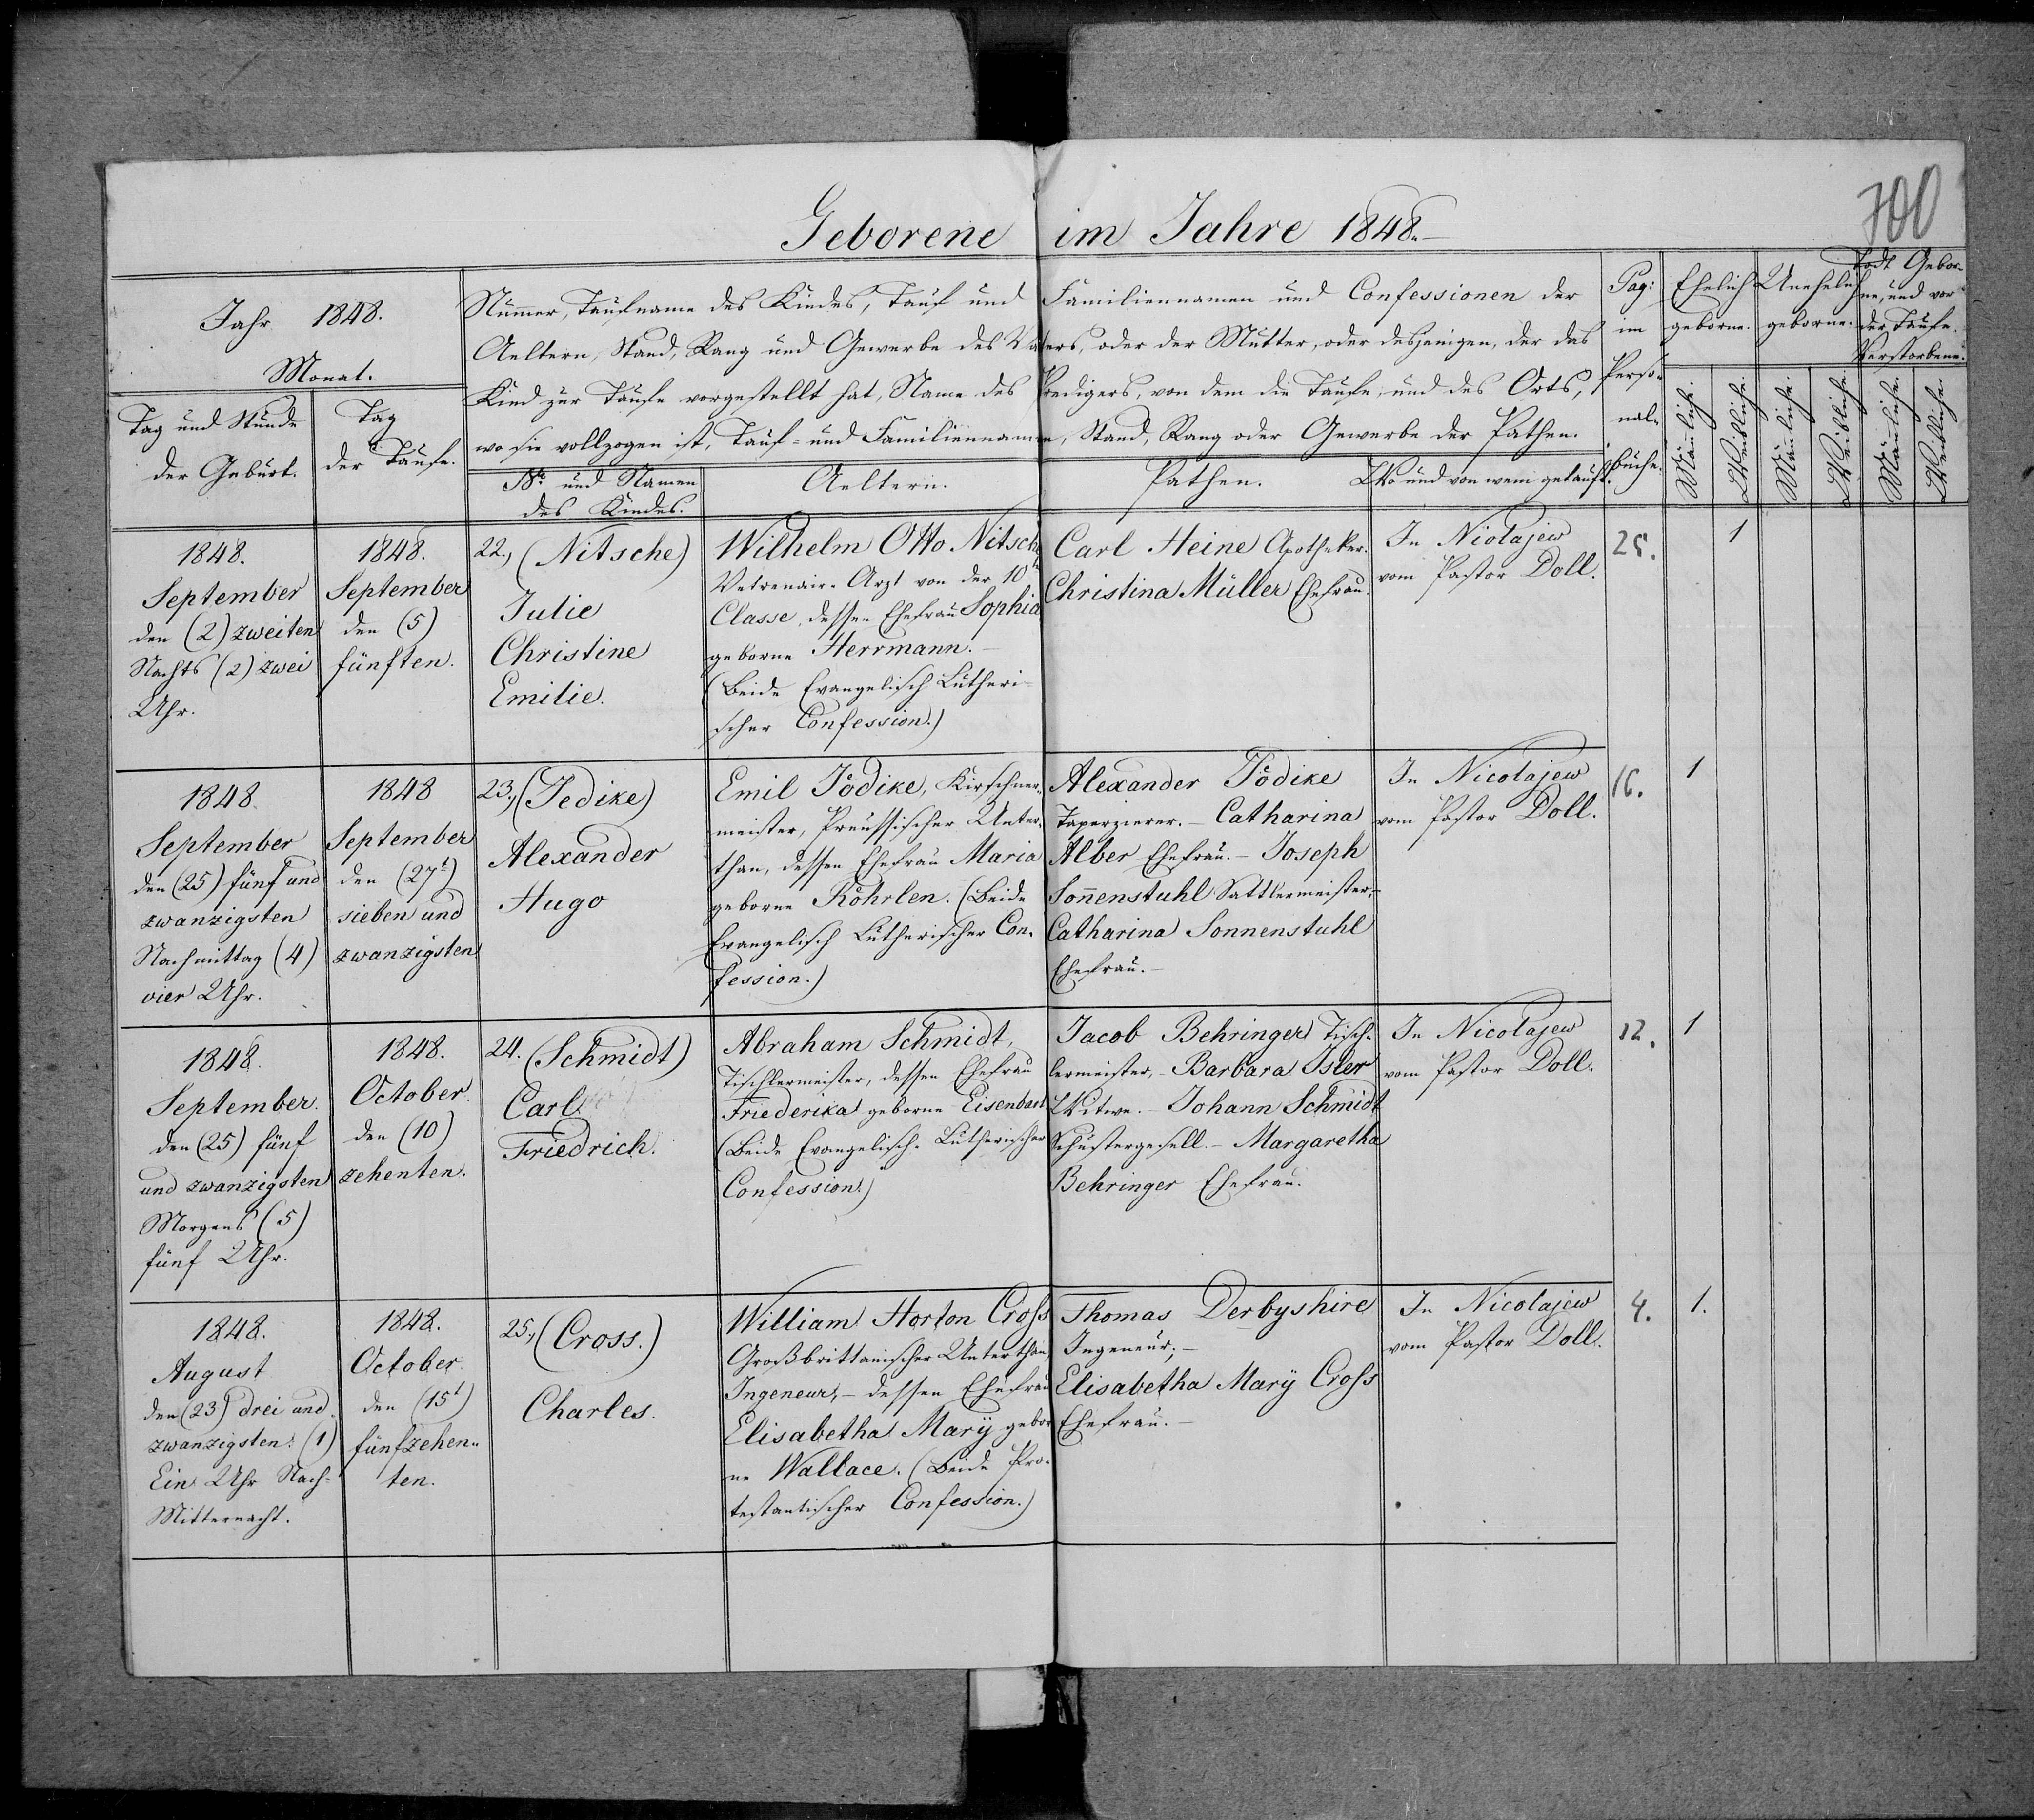 700
Geborene im Jahre 1848.–
Jahr 1848.
Monat.
Tag und Stunde
der Geburt.
Tag
der Taufe.
Nummer, Taufname des Kindes, Tauf und Familiennamen und Confessionen der
Aeltern, Stand, Rang und Gewerbe des Vaters, oder der Mutter, oder desjenigen, der das
Kind zur Taufe vorgestellt hat, Name des Predigers, von dem die Taufe, und des Orts,
wo sie vollzogen ist, Tauf- und Familiennamen, Stand, Rang oder Gewerbe der Pathen.
No und Namen
des Kindes.
Aeltern.
Pathen.
Wo und von wem getauft.
Pag:
im
Perso-
nal-
buche.
Ehelich
geborne.
Unehelich
geborne.
Todt Gebor-
ne, und vor
der Taufe
Verstorbene.
Männliche.
Weibliche.
Männliche.
Weibliche.
Männliche.
Weibliche.
1848.
September
den (2) zweiten
Nachts (2) zwei
Uhr.
1848.
September
den (5)
fünften.
22., (Nitsche)
Julie
Christine
Emilie.
Wilhelm Otto Nitsche
Vetrenair-Arzt von der 10
Classe, dessen Ehefrau Sophia
geborne Herrmann.–
(Beide Evangelisch Lutheri-
scher Confession.)
Carl Heine Apotheker.
Christina Müller Ehefrau.
In Niolajew
vom Pastor Doll.
25.
1
1848.
September
den (25) fünf und
zwanzigsten
Nachmittag (4)
vier Uhr.
1848
September
den (27t)
sieben und
zwanzigsten
23., (Jedike)
Alexander
Hugo
Emil Jödike, Kirschner-
meister, Preussischer Unter-
than, dessen Ehefrau Maria
geborne Röhrlen. (Beide
Evangelisch Lutherischer Con-
fession.)
Alexander Jödike
Taperzierer.– Catharina
Alber Ehefrau.– Joseph
Sonnenstuhl Sattlermeister.–
Catharina Sonnenstuhl
Ehefrau.–
In Nicolajew
vom Pastor Doll.
16.
1
1848.
September.
den (25) fünf
und zwanzigsten
Morgens (5)
fünf Uhr.
1848.
October.
den (10)
zehenten.
24. (Schmidt)
Carl
Friedrich.
Abraham Schmidt,
Tischlermeister, dessen Ehefrau
Friederika geborne Eisenbart
(Beide Evangelisch-Lutherischer
Confession.)
Jacob Behringer Tisch-
lermeister,– Barbara Isler
Witwe.– Johann Schmidt
Schustergesell.– Margaretha
Behringer Ehefrau.
In Nicolajew
vom Pastor Doll.
12.
1
1848.
August
den (23) drei und
zwanzigsten. (1)
Ein Uhr Nach-
Mitternacht.
1848.
October.
den (15t)
fünfzehen-
ten.
25., (Cross.)
Charles.
William Horton Cross
Großbrittanischer Unterthan,
Ingeneur,– dessen Ehefrau
Elisabetha Marÿ gebor
ne Wallace. (Beide Pro-
testantischer Confession.)
Thomas Derbyshire
Ingeneur;–
Elisabetha Marÿ Cross
Ehefrau.–
In Nicolajew
vom Pastor Doll.
4.
1.